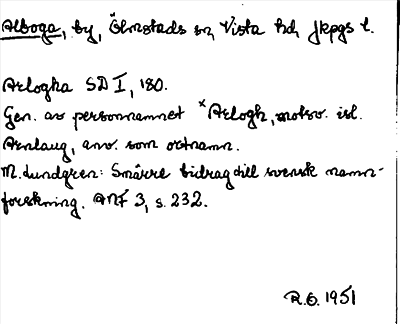 Alboga, by, Ölmstads sn, Vista hd, Jkpgs l.
Arlogha SD I, 180.
Gen. av personnamnet *Arlogh, motsv. isl.
Arnlaug, anv. som ortnamn.
M. Lundgren: Smärre bidrag till svensk namn-
forskning. ANF 3, s. 232.
R.O. 1951